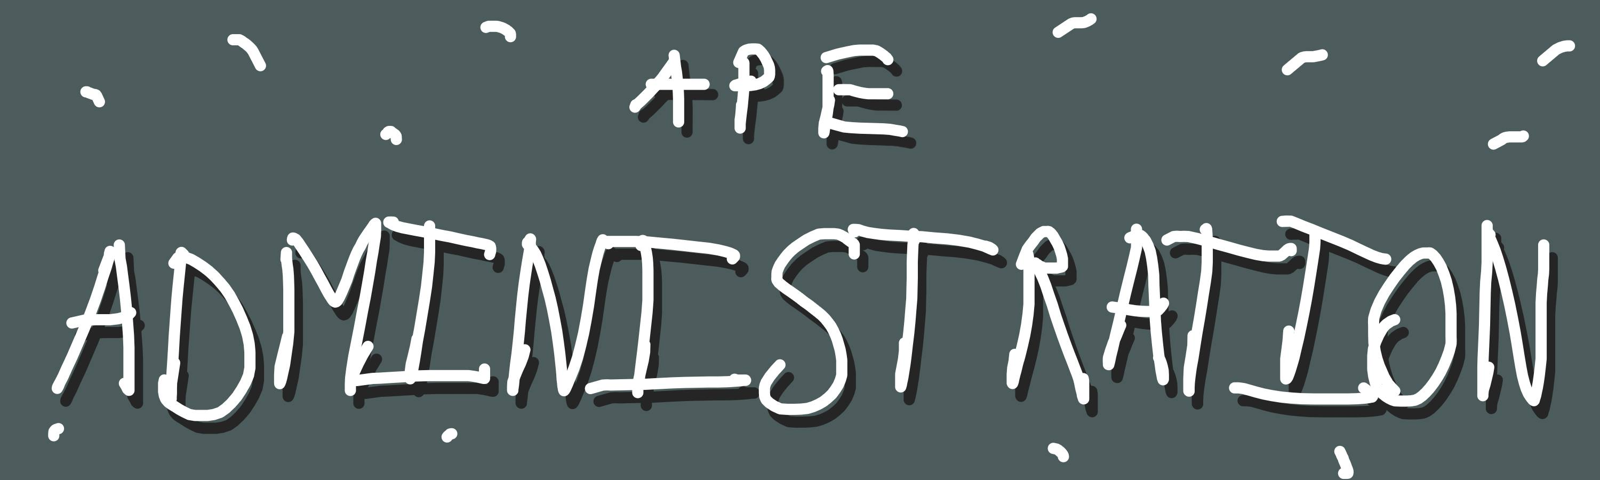 APE
ADMINISTRATION